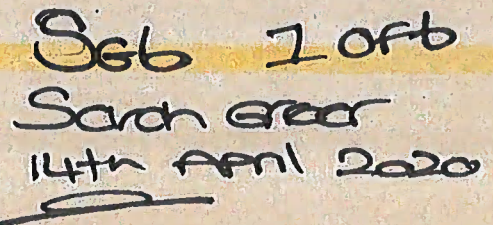 SG6 1 of 6
Sarah Greer
14th April 2020